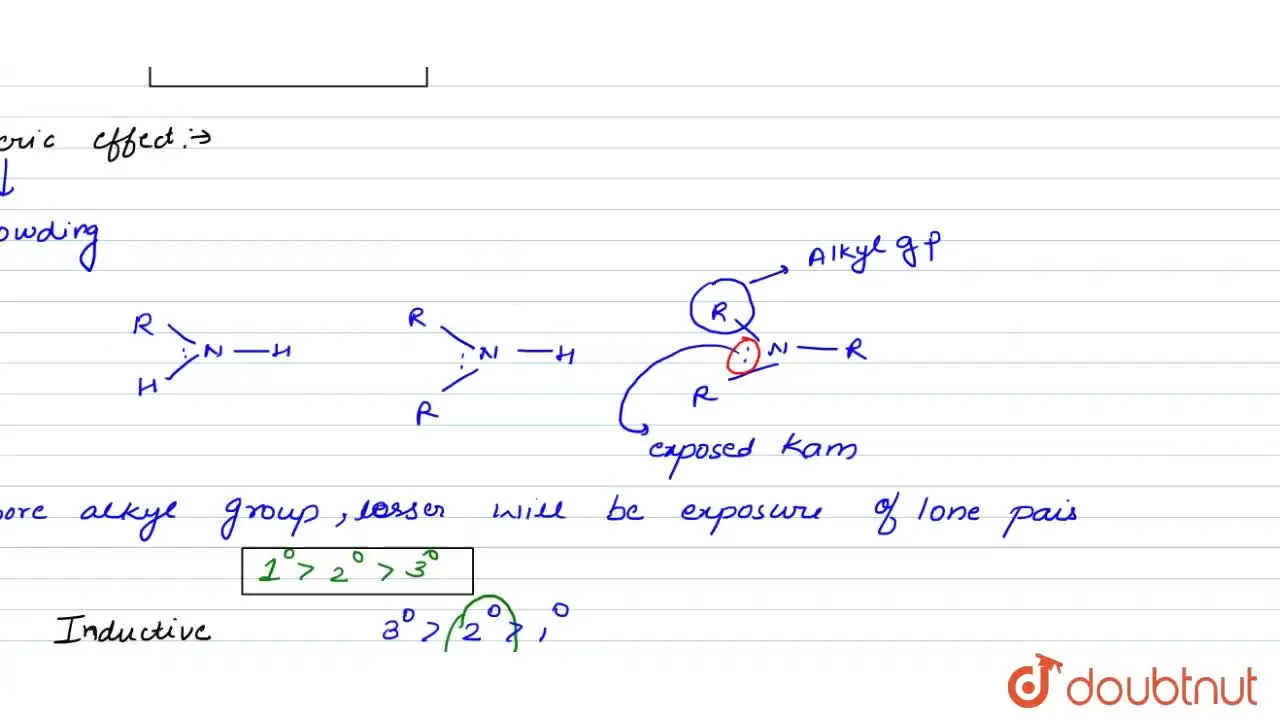 eric effect :⇒
↓
owding
Alkyl gp
R R R
N — H N — H : N — R
H R R
exposed Kam
ore alkyl group, lesser will be exposure of lone pair
1° > 2° > 3°
Inductive 3° > 2° > 1°
doubtnut